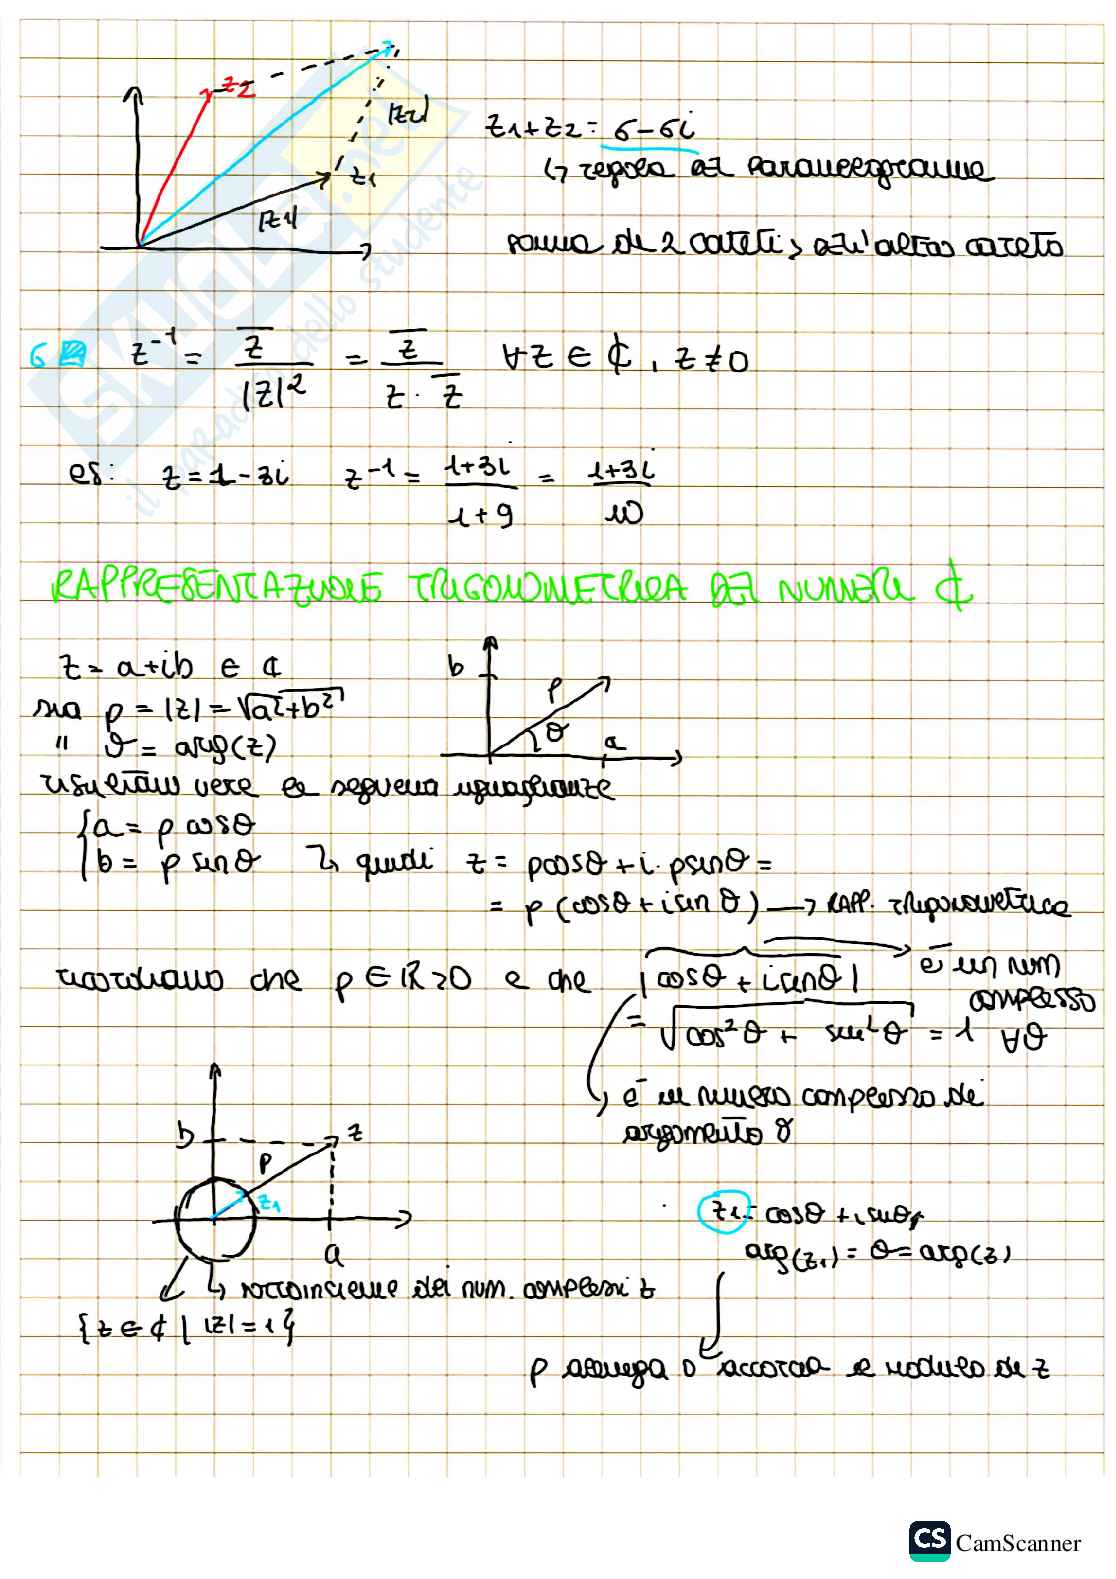 z2
|z2|
z1
|z1|
z1+z2= 6-6i
↳ regola del parallelogramma
somma di 2 cateti > dell'altro cateto
6 z⁻¹ = z̅ / |z|² = z̅ / z · z̅ ∀z ∈ ℂ, z≠0
es: z=1-3i z⁻¹ = 1+3i / 1+9 = 1+3i / 10
RAPPRESENTAZIONE TRIGONOMETRICA DEI NUMERI ℂ
z= a+ib ∈ ℂ
sia ρ = |z| = √a²+b²
" θ = arg(z)
b
ρ
θ
a
risultano vere le seguenti uguaglianze
{a = ρ cosθ
{b = ρ sinθ ↳ quindi z = ρcosθ + i · ρsinθ =
= ρ (cosθ + i sin θ) → RAPP. trigonometrica
ricordiamo che ρ ∈ ℝ ≥0 e che |cosθ + i sinθ|
è un num complesso
= √cos²θ + sen²θ = 1 ∀θ
↳ è un numero complesso di
argomento θ
b
z
ρ
z1
a
z1 = cosθ + i sinθ,
arg(z1) = θ = arg(z)
↳ sottoinsieme dei num. complessi z
{z ∈ ℂ | |z| = 1}
ρ allunga o accorcia il modulo di z
SKUOLA.net
il paradiso dello studente
CS CamScanner